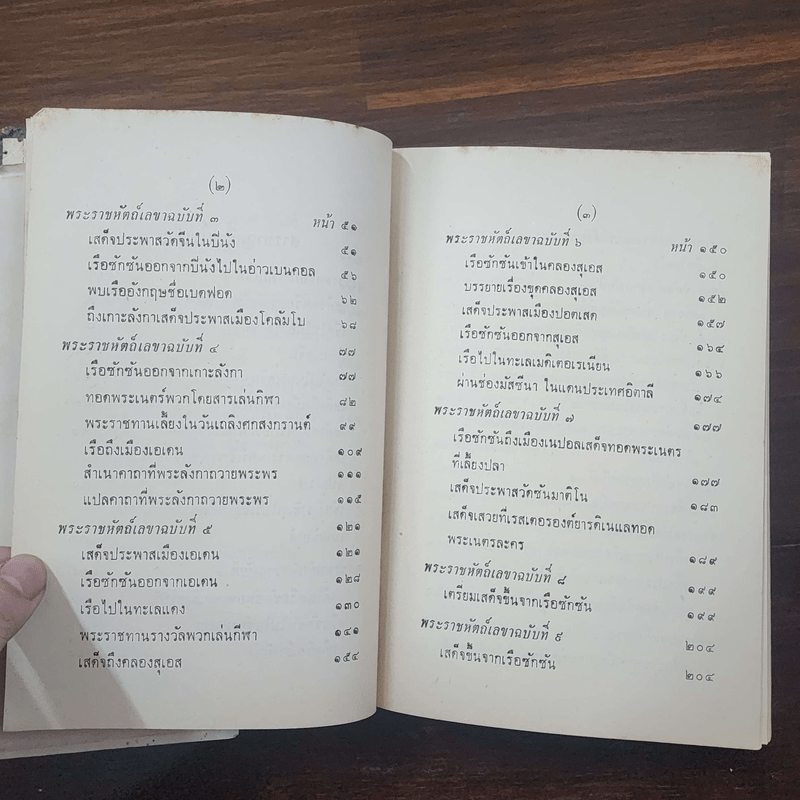 (๒)
พระราชหัตถ์เลขาฉบับที่ ๓ หน้า ๕๑
เสด็จประพาสวัดจีนในปีนัง ๕๑
เรือซักซันออกจากปีนังไปในอ่าวเบนคอล ๕๖
พบเรืออังกฤษชื่อเบดฟอด ๖๒
ถึงเกาะลังกาเสด็จประพาสเมืองโคลัมโบ ๖๘
พระราชหัตถ์เลขาฉบับที่ ๔ ๗๗
เรือซักซันออกจากเกาะลังกา ๗๗
ทอดพระเนตร์พวกโดยสารเล่นกีฬา ๘๒
พระราชทานเลี้ยงในวันเถลิงศกสงกรานต์ ๙๙
เรือถึงเมืองเอเดน ๑๐๙
สำเนาคาถาที่พระลังกาถวายพระพร ๑๑๑
แปลคาถาที่พระลังกาถวายพระพร ๑๑๕
พระราชหัตถ์เลขาฉบับที่ ๕ ๑๒๑
เสด็จประพาสเมืองเอเดน ๑๒๑
เรือซักซันออกจากเอเดน ๑๒๘
เรือไปในทะเลแดง ๑๓๐
พระราชทานรางวัลพวกเล่นกีฬา ๑๔๑
เสด็จถึงคลองสุเอส ๑๕๔
(๓)
พระราชหัตถ์เลขาฉบับที่ ๖ หน้า ๑๕๐
เรือซักซันเข้าในคลองสุเอส ๑๕๐
บรรยายเรื่องขุดคลองสุเอส ๑๕๒
เสด็จประพาสเมืองปอดเสด ๑๕๗
เรือซักซันออกจากสุเอส ๑๖๔
เรือไปในทะเลเมดิเตอเรเนียน ๑๖๖
ผ่านช่องมัสซีนา ในแดนประเทศอิตาลี ๑๗๔
พระราชหัตถ์เลขาฉบับที่ ๗ ๑๗๗
เรือซักซันถึงเมืองเนปอลเสด็จทอดพระเนตร
ที่เลี้ยงปลา ๑๗๗
เสด็จประพาสวัดซันมาติโน ๑๘๓
เสด็จเสวยที่เรสเตอรองต์ยารดิเนแลทอด
พระเนตรละคร ๑๘๙
พระราชหัตถ์เลขาฉบับที่ ๘ ๑๙๙
เตรียมเสด็จขึ้นจากเรือซักซัน ๑๙๙
พระราชหัตถ์เลขาฉบับที่ ๙ ๒๐๔
เสด็จขึ้นจากเรือซักซัน ๒๐๔